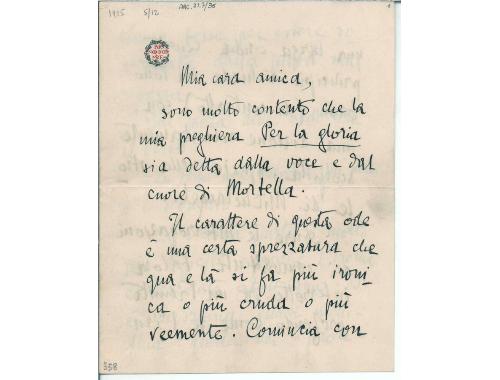 1915 5/12
Mia cara amica,
sono molto contento che la
mia preghiera Per la gloria
sia detta dalla voce e dal
cuore di Mortella.
Il carattere di questa ode
è una certa sprezzatura che
qua e là si fa più ironi-
ca o più cruda o più
veemente. Comincia con
358